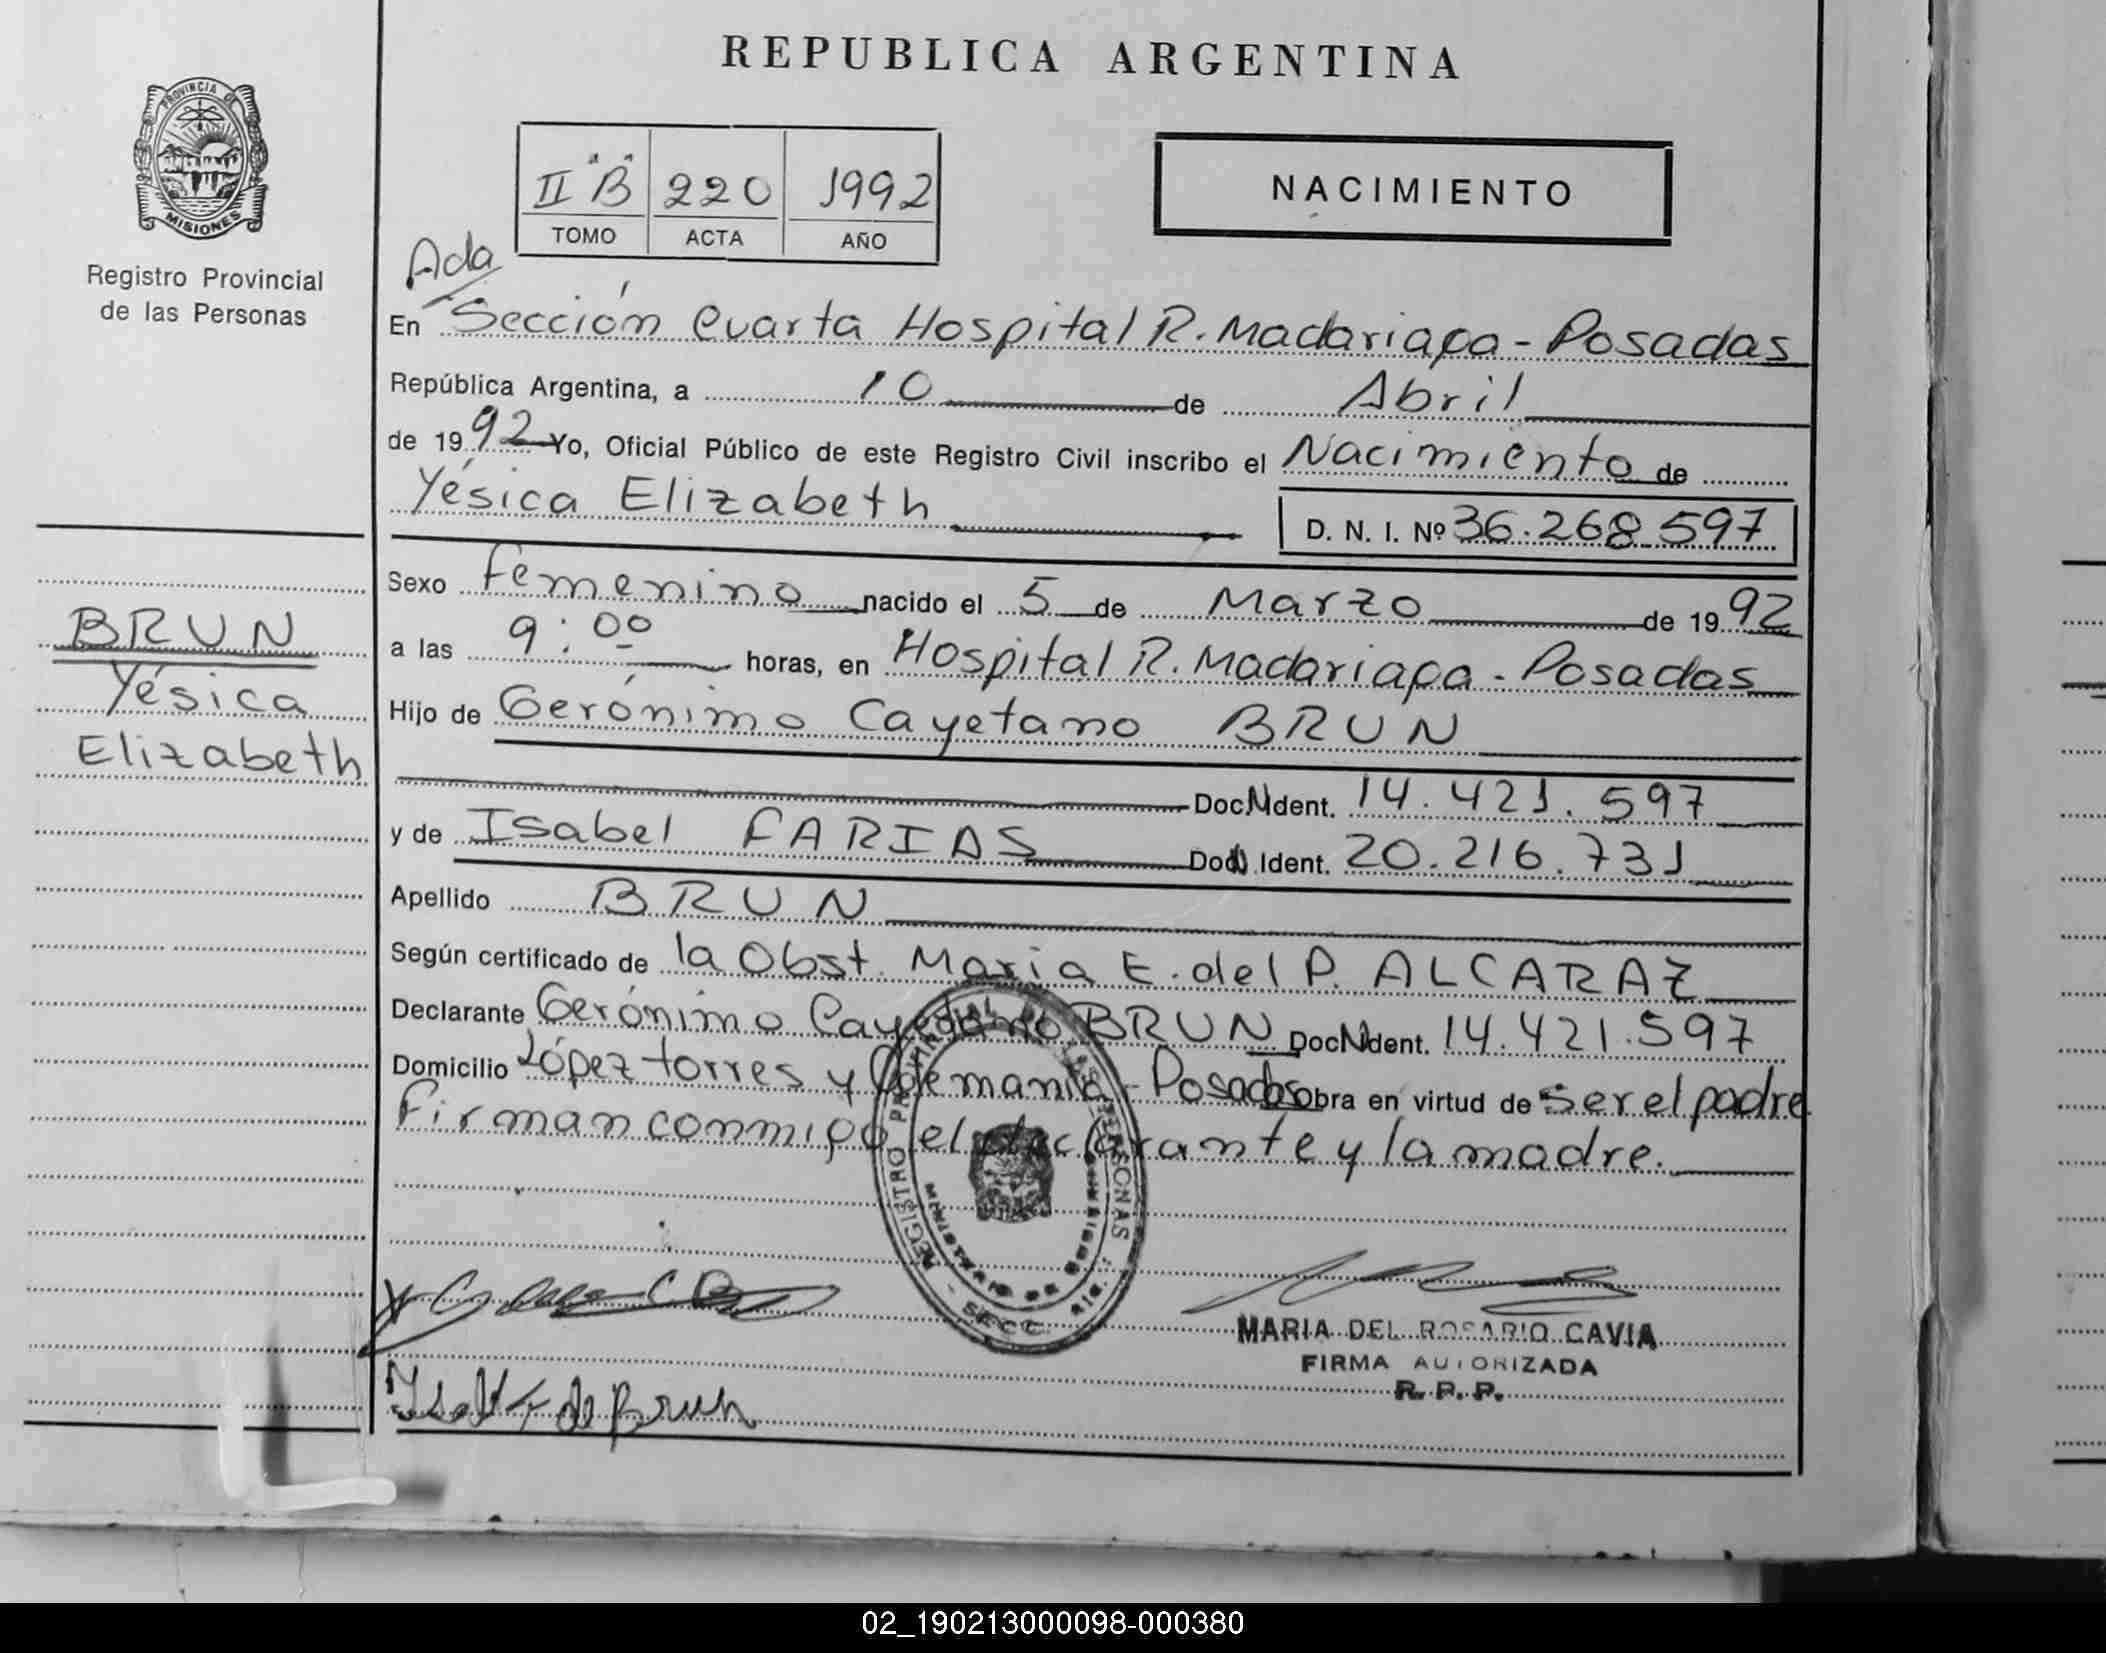 REPUBLICA ARGENTINA
PROVINCIA DE
MISIONES
Registro Provincial
de las Personas
II "B" 220 1992
TOMO ACTA AÑO
NACIMIENTO
Ada
En Sección Cuarta Hospital R. Madariaga - Posadas
República Argentina, a 10 de Abril
de 1992 Yo, Oficial Público de este Registro Civil inscribo el Nacimiento de
Yésica Elizabeth D. N. I. Nº 36.268.597
Sexo femenino nacido el 5 de Marzo de 1992
a las 9:00 horas, en Hospital R. Madariaga - Posadas
Hijo de Gerónimo Cayetano BRUN
Doc. Ident. 14.421.597
y de Isabel FARIAS Doc. Ident. 20.216.731
Apellido BRUN
Según certificado de la Obst. Maria E. del P. ALCARAZ
Declarante Gerónimo Cayetano BRUN Doc. Ident. 14.421.597
Domicilio López torres y Alemania - Posadas obra en virtud de ser el padre
Firman conmigo el declarante y la madre.
BRUN
Yésica
Elizabeth
REGISTRO PROVINCIAL DE LAS PERSONAS
MINISTERIO DE GOBIERNO
SECC.
MARIA DEL ROSARIO CAVIA
FIRMA AUTORIZADA
R. P. P.
de Brun
02_190213000098-000380